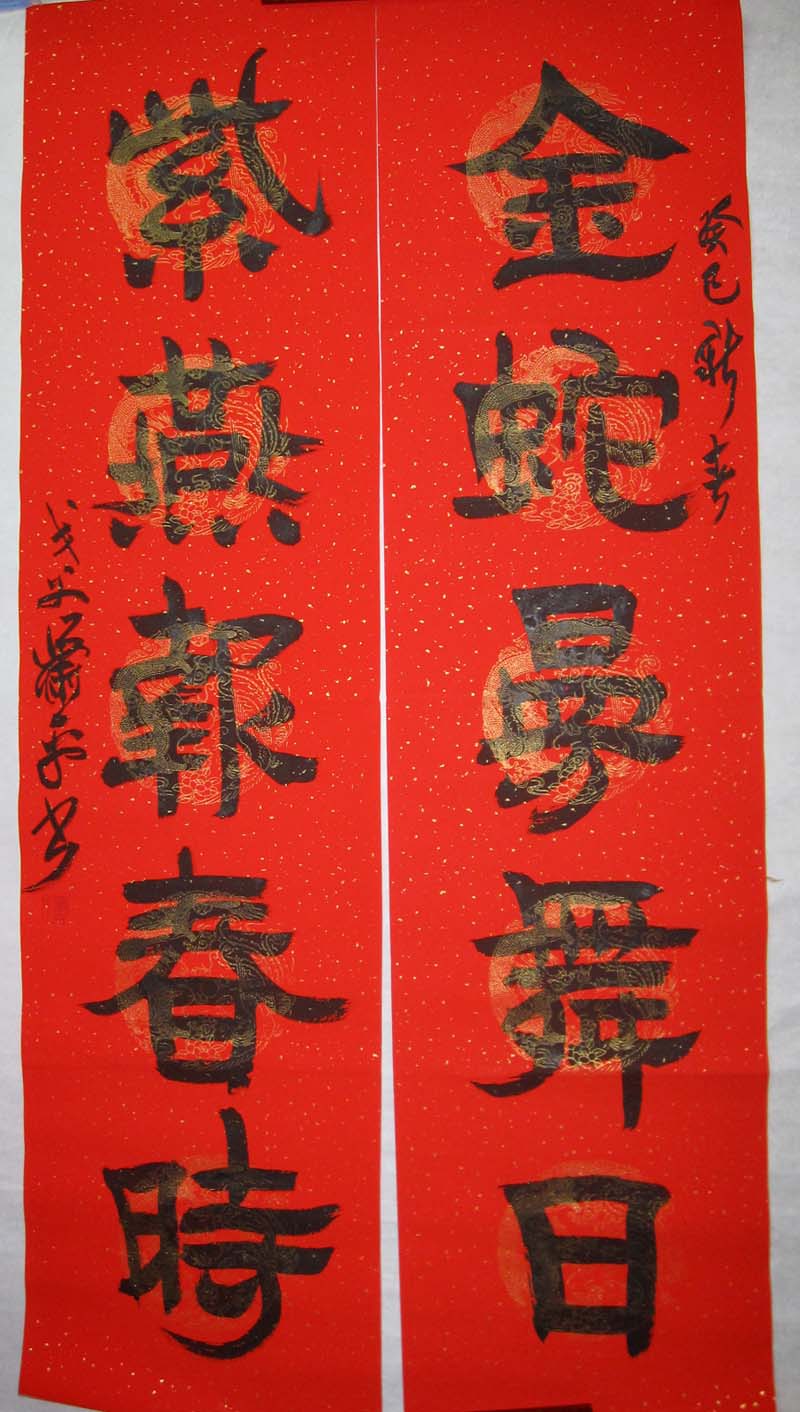 癸巳新春
金蛇曼舞日
紫燕報春時